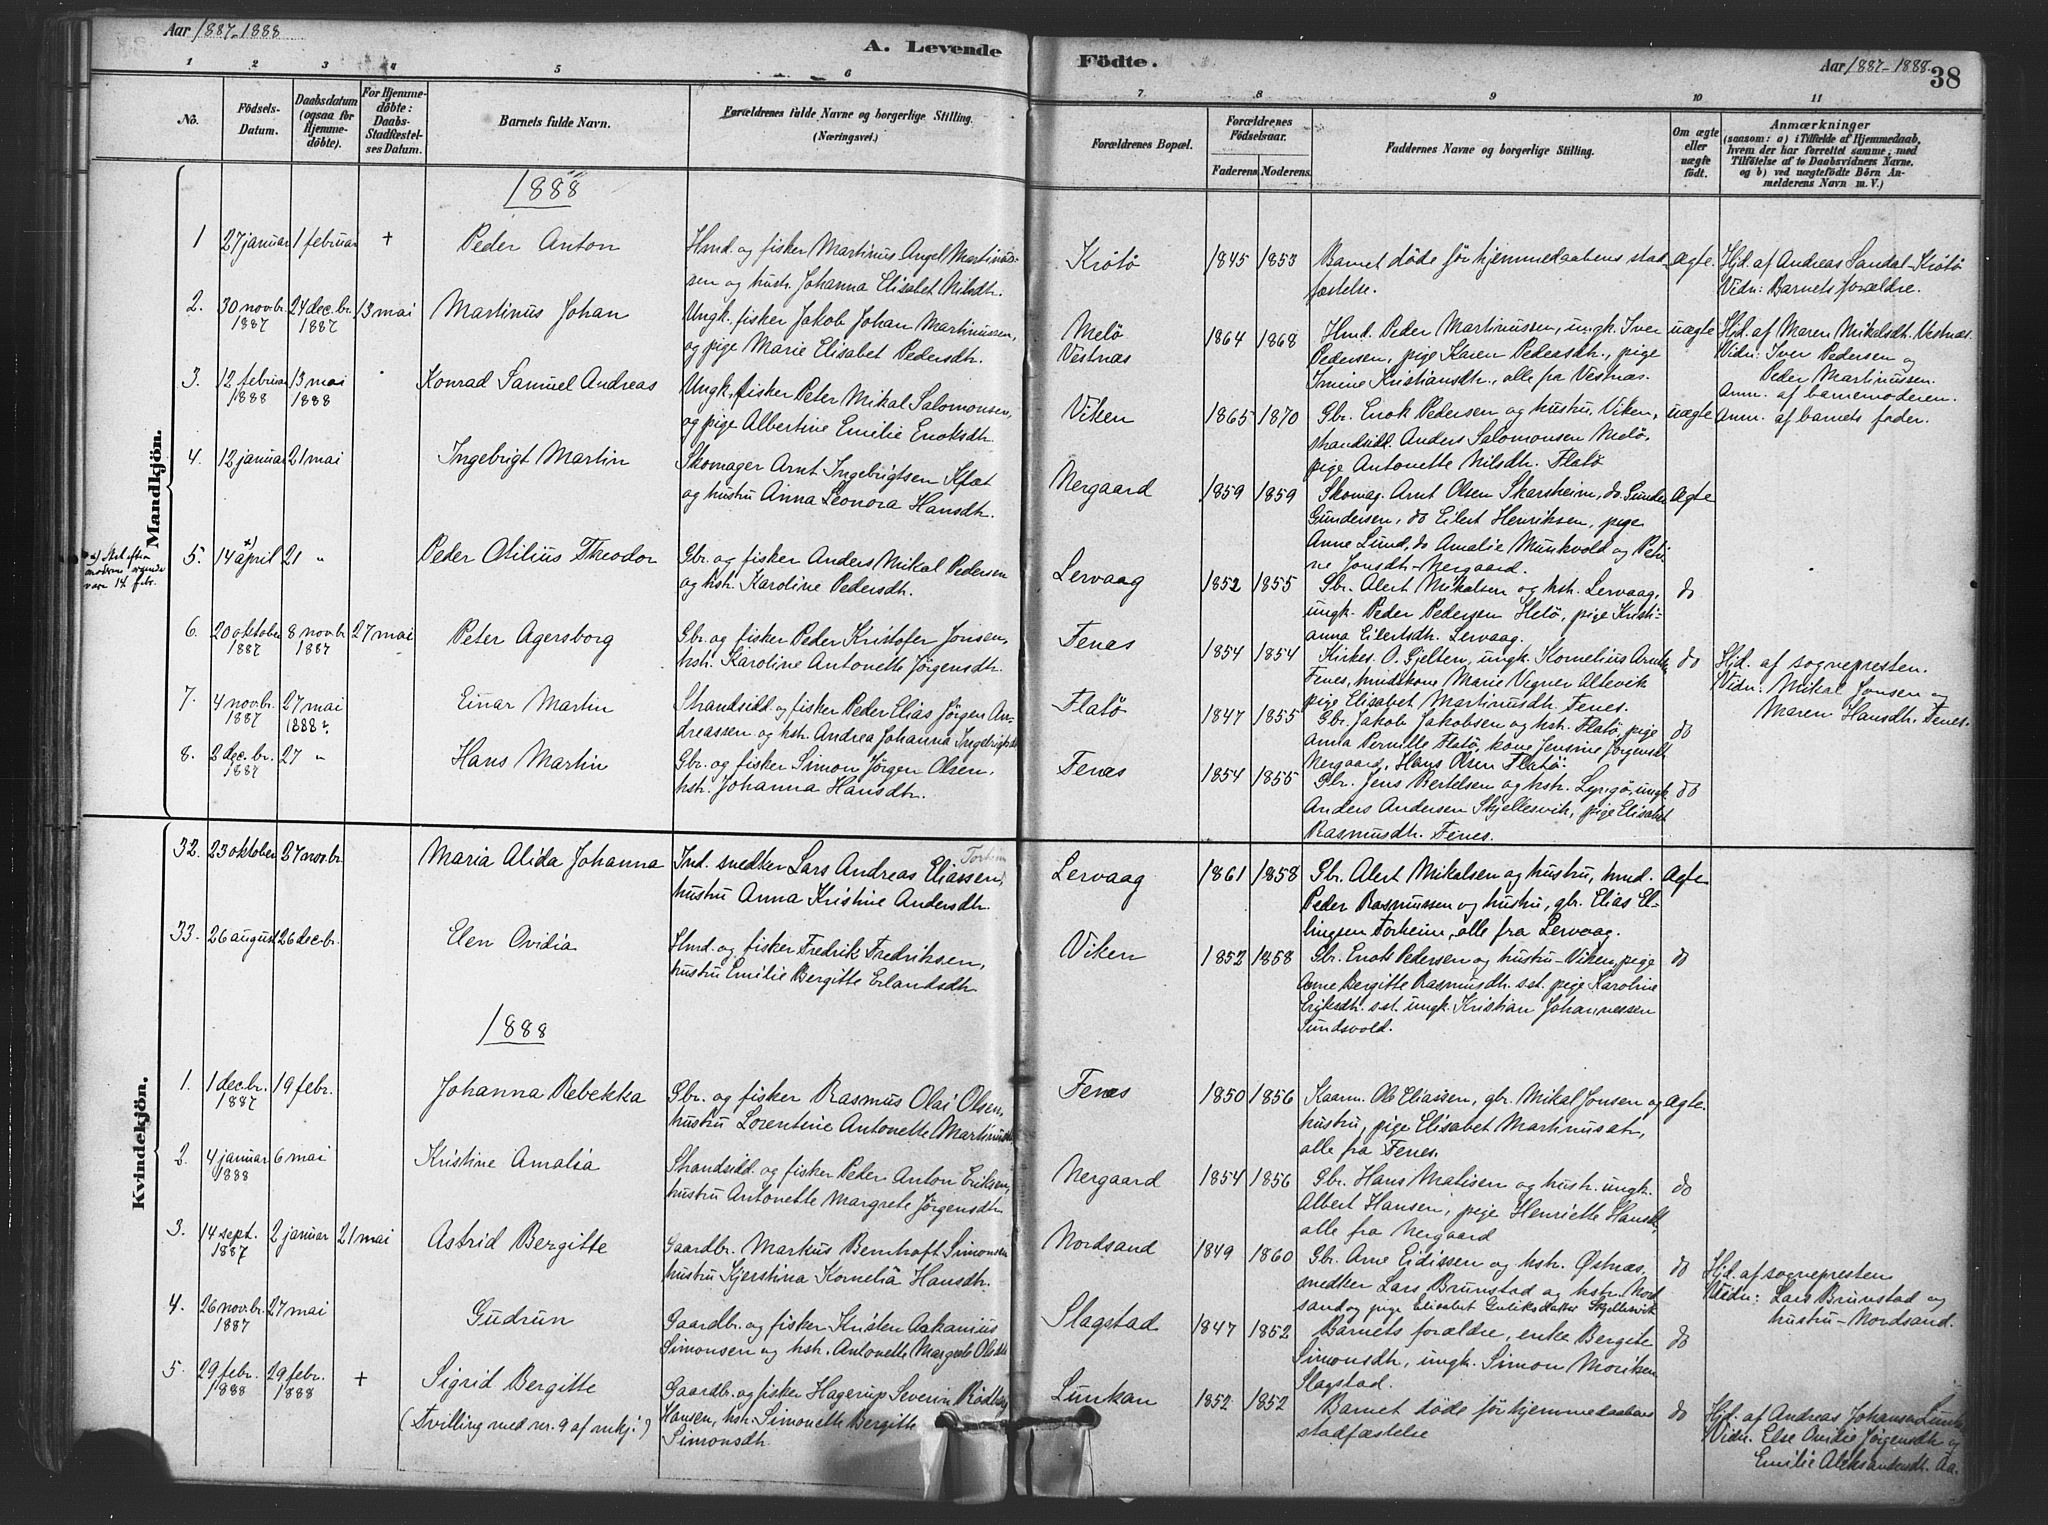 Aar 1887-1888
A. Levende
Födte.
Aar 1887-1888.
38
1 2 3 4 5 6 7 8 9 10 11
No.
Födsels-
Datum.
Daabsdatum
(ogsaa for
Hjemme-
döbte).
For Hjemme-
döbte:
Daabs-
Stadfæstel-
ses Datum.
Barnets fulde Navn.
Forældrenes fulde Navne og borgerlige Stilling.
(Næringsvei.)
Forældrenes Bopæl.
Forældrenes
Födselsaar.
Faderens. Moderens.
Faddernes Navne og borgerlige Stilling.
Om ægte
eller
uægte
födt.
Anmærkninger
(saasom: a) i Tilfælde af Hjemmedaab,
hvem der har forrettet samme, med
Tilföielse af to Daabsvidners Navne,
og b) ved uægtefödte Börn An-
melderens Navn m. V.)
Mandkjön.
1888
1 27 januar 1 februar + Peder Anton
Hmd. og fisker Martinus Angel Martinus-
sen og hustr. Johanna Elisabet Nilsdtr.
Krötö 1845 1853
Barnet döde för hjemmedaabens stad-
fæstelse.
Ægte
Hjd. af Andreas Sandal-Krötö
Vidn: Barnets forældre.
2. 30 novbr. 1887 24 decbr. 1887 13 mai Martinus Johan
Ungk. fisker Jakob Johan Martinussen,
og pige Marie Elisabet Pedersdtr.
Melö
Vestnæs
1864 1868
Hmd. Peder Martinussen, ungk. Iver
Pedersen, pige Karen Pedersdtr., pige
Irmine Kristiansdtr., alle fra Vestnæs.
uægte
Hjd. af Maren Mikalsdtr. Vestnæs.
Vidn: Iver Pedersen og
Peder Martinussen.
Anm. af barnemoderen.
3. 12 februar 1888 13 mai 1888 Konrad Samuel Andreas
Ungk. fisker Peter Mikal Salomonsen,
og pige Albertine Emilie Enoksdtr.
Viken 1865 1870
Gbr. Enok Pedersen og hustru, Viken,
strandsidd. Anders Salomonsen Melö,
pige Antonette Nilsdtr. Flatö
uægte
Anm. af barnets fader.
4. 12 januar 21 mai Ingebrigt Martin
Skomager Arnt Ingebrigtsen
og hustru Anna Leonora Hansdtr.
Nergaard 1859 1859
Skomag. Arnt Olsen Skarsheim, do.
Gundersen, do Eilert Henriksen, pige
Anne Lund, do Amalie Munkvold og Petri-
ne Jonsdtr-Nergaard.
Ægte
x) Skal efter
moderens
være 14 febr.
5. 14 april x) 21 " Peder Otilius Theodor
Gbr. og fisker Anders Mikal Pedersen
og hstr. Karoline Pedersdtr.
Lervaag 1852 1855
Gbr. Alert Mikalsen og hstr. Lervaag,
ungk. Peder Pedersen Helö, pige Kristi-
anna Eilertsdtr. Lervaag.
do
6. 20 oktober 1887 8 novbr. 1887 27 mai Peter Agersborg
Gbr. og fisker Peder Kristofer Jonsen,
hstr. Karoline Antonette Jörgensdtr.
Fenes 1854 1854
Kirkes. O. Gjelten, ungk. Kornelius
Fenes, hmdskone Marie Vegner Altevik
pige Elisabet Martinusdtr. Fenes.
do
Hjd. af sognepresten.
Vidn: Mikal Jonsen og
Maren Hansdtr. Fenes.
7. 4 novbr. 1887 27 mai 1888 Einar Martin
Strandsidd. og fisker Peder Elias Jörgen An-
dreassen og hstr. Andrea Johanna Ingebrigtsdtr.
Flatö 1847 1855
Gbr. Jakob Jakobsen og hstr. Flatö, pige
Anna Pernille Flatö, kone Jensine Jörgensdtr.
Nergaard, Hans Olsen Flatö.
do
8. 2 decbr. 1887 27 " Hans Martin
Gbr. og fisker Simon Jörgen Olsen,
hstr. Johanna Hansdtr.
Fenes 1854 1855
Gbr. Jens Bertelsen og hstr. Lyngö, ungk.
Anders Andersen Skjellesvik, pige Elisabet
Rasmusdtr. Fenes.
do
Kvindekjön.
32. 23 oktober 27 novbr. Maria Alida Johanna
Ind. snedker Lars Andreas Eliassen, Torheim
hustru Anna Kristine Andersdtr.
Lervaag 1861 1858
Gbr. Alert Mikalsen og hustru, hmd.
Peder Rasmussen og hustru, gbr. Elias El-
lingsen Torheim, alle fra Lervaag.
Ægte
33. 26 august 26 decbr. Elen Ovidia
Hmd. og fisker Fredrik Fredriksen,
hustru Emilie Bergitte Erlandsdtr.
Viken 1852 1858
Gbr. Enok Pedersen og hustru-Viken, pige
Anne Bergitte Rasmusdtr. sst. pige Karoline
Eriksdtr. sst. ungk. Kristian Johannessen
Sundsvold.
do
1888
1. 1 decbr. 1887 19 febr. Johanna Rebekka
Gbr. og fisker Rasmus Olai Olsen,
hustru Lorentine Antonette Martinusdtr.
Fenes 1850 1856
Kaarm. Ole Eliassen, gbr. Mikal Jonsen og
hustru, pige Elisabet Martinusdtr,
alle fra Fenes.
Ægte.
2. 4 januar 1888 6 mai Kristine Amalia
Strandsidd. og fisker Peder Anton Eriksen,
hustru Antonette Margrete Jörgensdtr.
Nergaard 1854 1856
Gbr. Hans Matisen og hustr. ungk.
Albert Hansen, pige Henriette Hansdtr,
alle fra Nergaard
do
3. 14 sept. 1887 2 januar 21 mai Astrid Bergitte
Gaardbr. Markus Bernhoft Simonsen
hustru Kjerstina Kornelia Hansdtr.
Nordsand 1849 1860
Gbr. Arne Eidissen og hstr. Östnæs,
snedker Lars Brunstad og hstr. Nord
sand og pige Elisabet Skjellesvik
do
Hjd. af sognepresten
Vidn: Lars Brunstad og
hustru-Nordsand.
4. 26 novbr. 1887 27 mai Gudrun
Gaardbr. og fisker Kristen Askanius
Simonsen og hstr. Antonette Margrete Olsdtr
Slagstad 1847 1852
Barnets forældre, enke Bergite
Simonsdtr, ungk. Simon Moriksen
Slagstad.
do
5. 29 febr. 1888 29 febr. 1888 + Sigrid Bergitte
(Tvilling med nr. 9 af mkj.)
Gaardb. og fisker Hagerup Severin Rödberg
Hansen, hstr. Simonette Bergitte
Simonsdtr.
Lunkan 1852 1852
Barnet döde för hjemmedaabens
stadfæstelse
do
Hjd. af Andreas Johansen Lunkan
Vidn. Else Ovidie Jörgensdtr og
Emilie Aleksandersdtr. Aa.